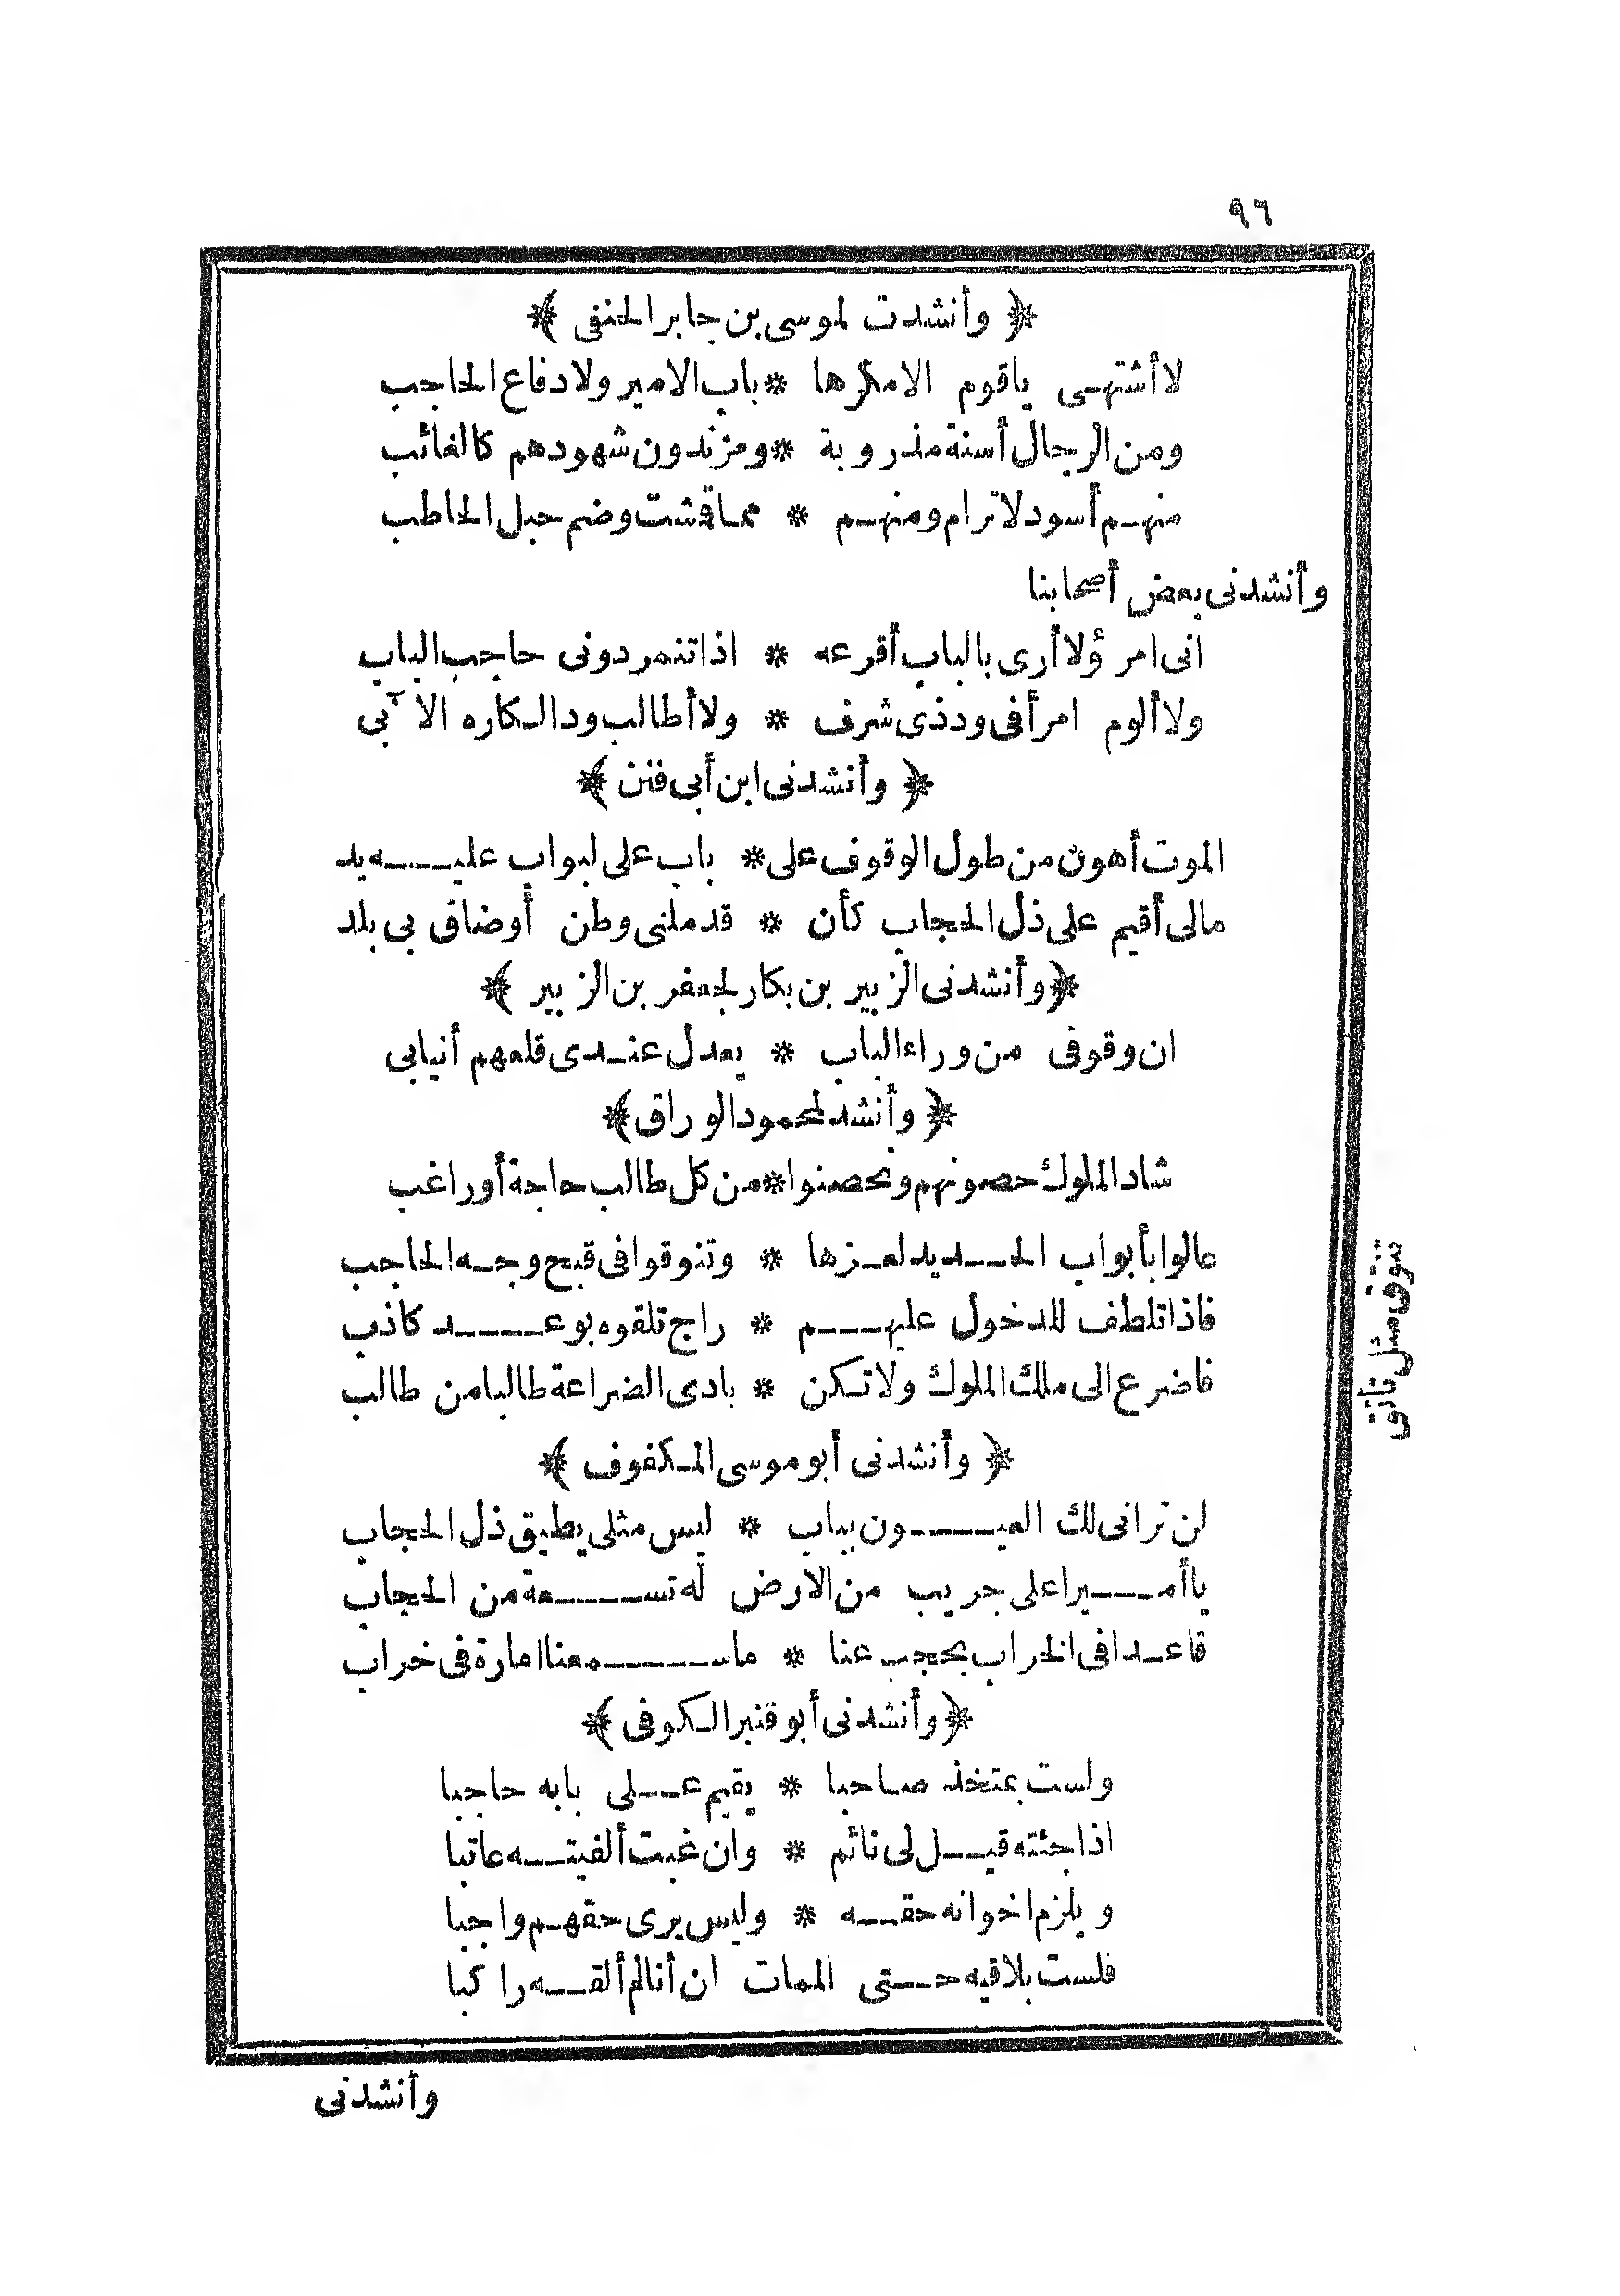 ٩٦
﴿ وأنشدت لموسى بن جابر الحنفى ﴾
لا أشتهـى ياقوم الامكرها * باب الامير ولا دفاع الحاجب
ومن الرجال أسنة مذروبة * ومزندون شهودهم كالغائب
منهـم أسود لا ترام ومنهـم * مما قشت وضم حبل الحاطب
وأنشدنى بعض أصحابنا
انى امرؤ لا أرى بالباب أقرعه * اذا تنمر دونى حاجب الباب
ولا ألوم امرأ فى ود ذى شرف * ولا أطالب ود الـكاره الآبى
﴿ وأنشدنى ابن أبى فنن ﴾
الموت أهون من طول الوقوف على * باب على لبواب عليـــه يد
مالى أقيم على ذل الحجاب كأن * قد ملنى وطن أوضاق بى بلد
﴿ وأنشدنى الزبير بن بكار لجعفر بن الزبير ﴾
ان وقوفى من وراء الباب * يعدل عنـدى قلعهم أنيابى
﴿ وأنشد لمحمود الوراق ﴾
شاد الملوك حصونهم وتحصنوا * من كل طالب حاجة أو راغب
عالوا بأبواب الحــديد لعـزها * وتنوقوا فى قبح وجـه الحاجب
فاذا تلطف للدخول عليهـــم * راج تلقوه بوعــــد كاذب
فاضرع الى ملك الملوك ولا تـكن * بادى الضراعة طالبا من طالب
﴿ وأنشدنى أبو موسى المـكفوف ﴾
لن ترانى لك العيــــون بباب * ليس مثلى يطيق ذل الحجاب
يا أمـــيرا على جريب من الارض له تســـعة من الحجاب
قاعـدا فى الخراب يحجب عنا * ماســـمعنا امارة فى خراب
﴿ وأنشدنى أبو قنبر الـكوفى ﴾
ولست بمتخذ صـاحبا * يقيم عــلى بابه حاجبا
اذا جئته قيــل لى نائم * وان غبت ألفيتــه عاتبا
ويلزم اخوانه حقــه * وليس يرى حقهـم واجبا
فلست بلاقيه حــتى الممات ان أنا لم ألقــه راكبا
تنوّق مثل تأنق
وأنشدنى